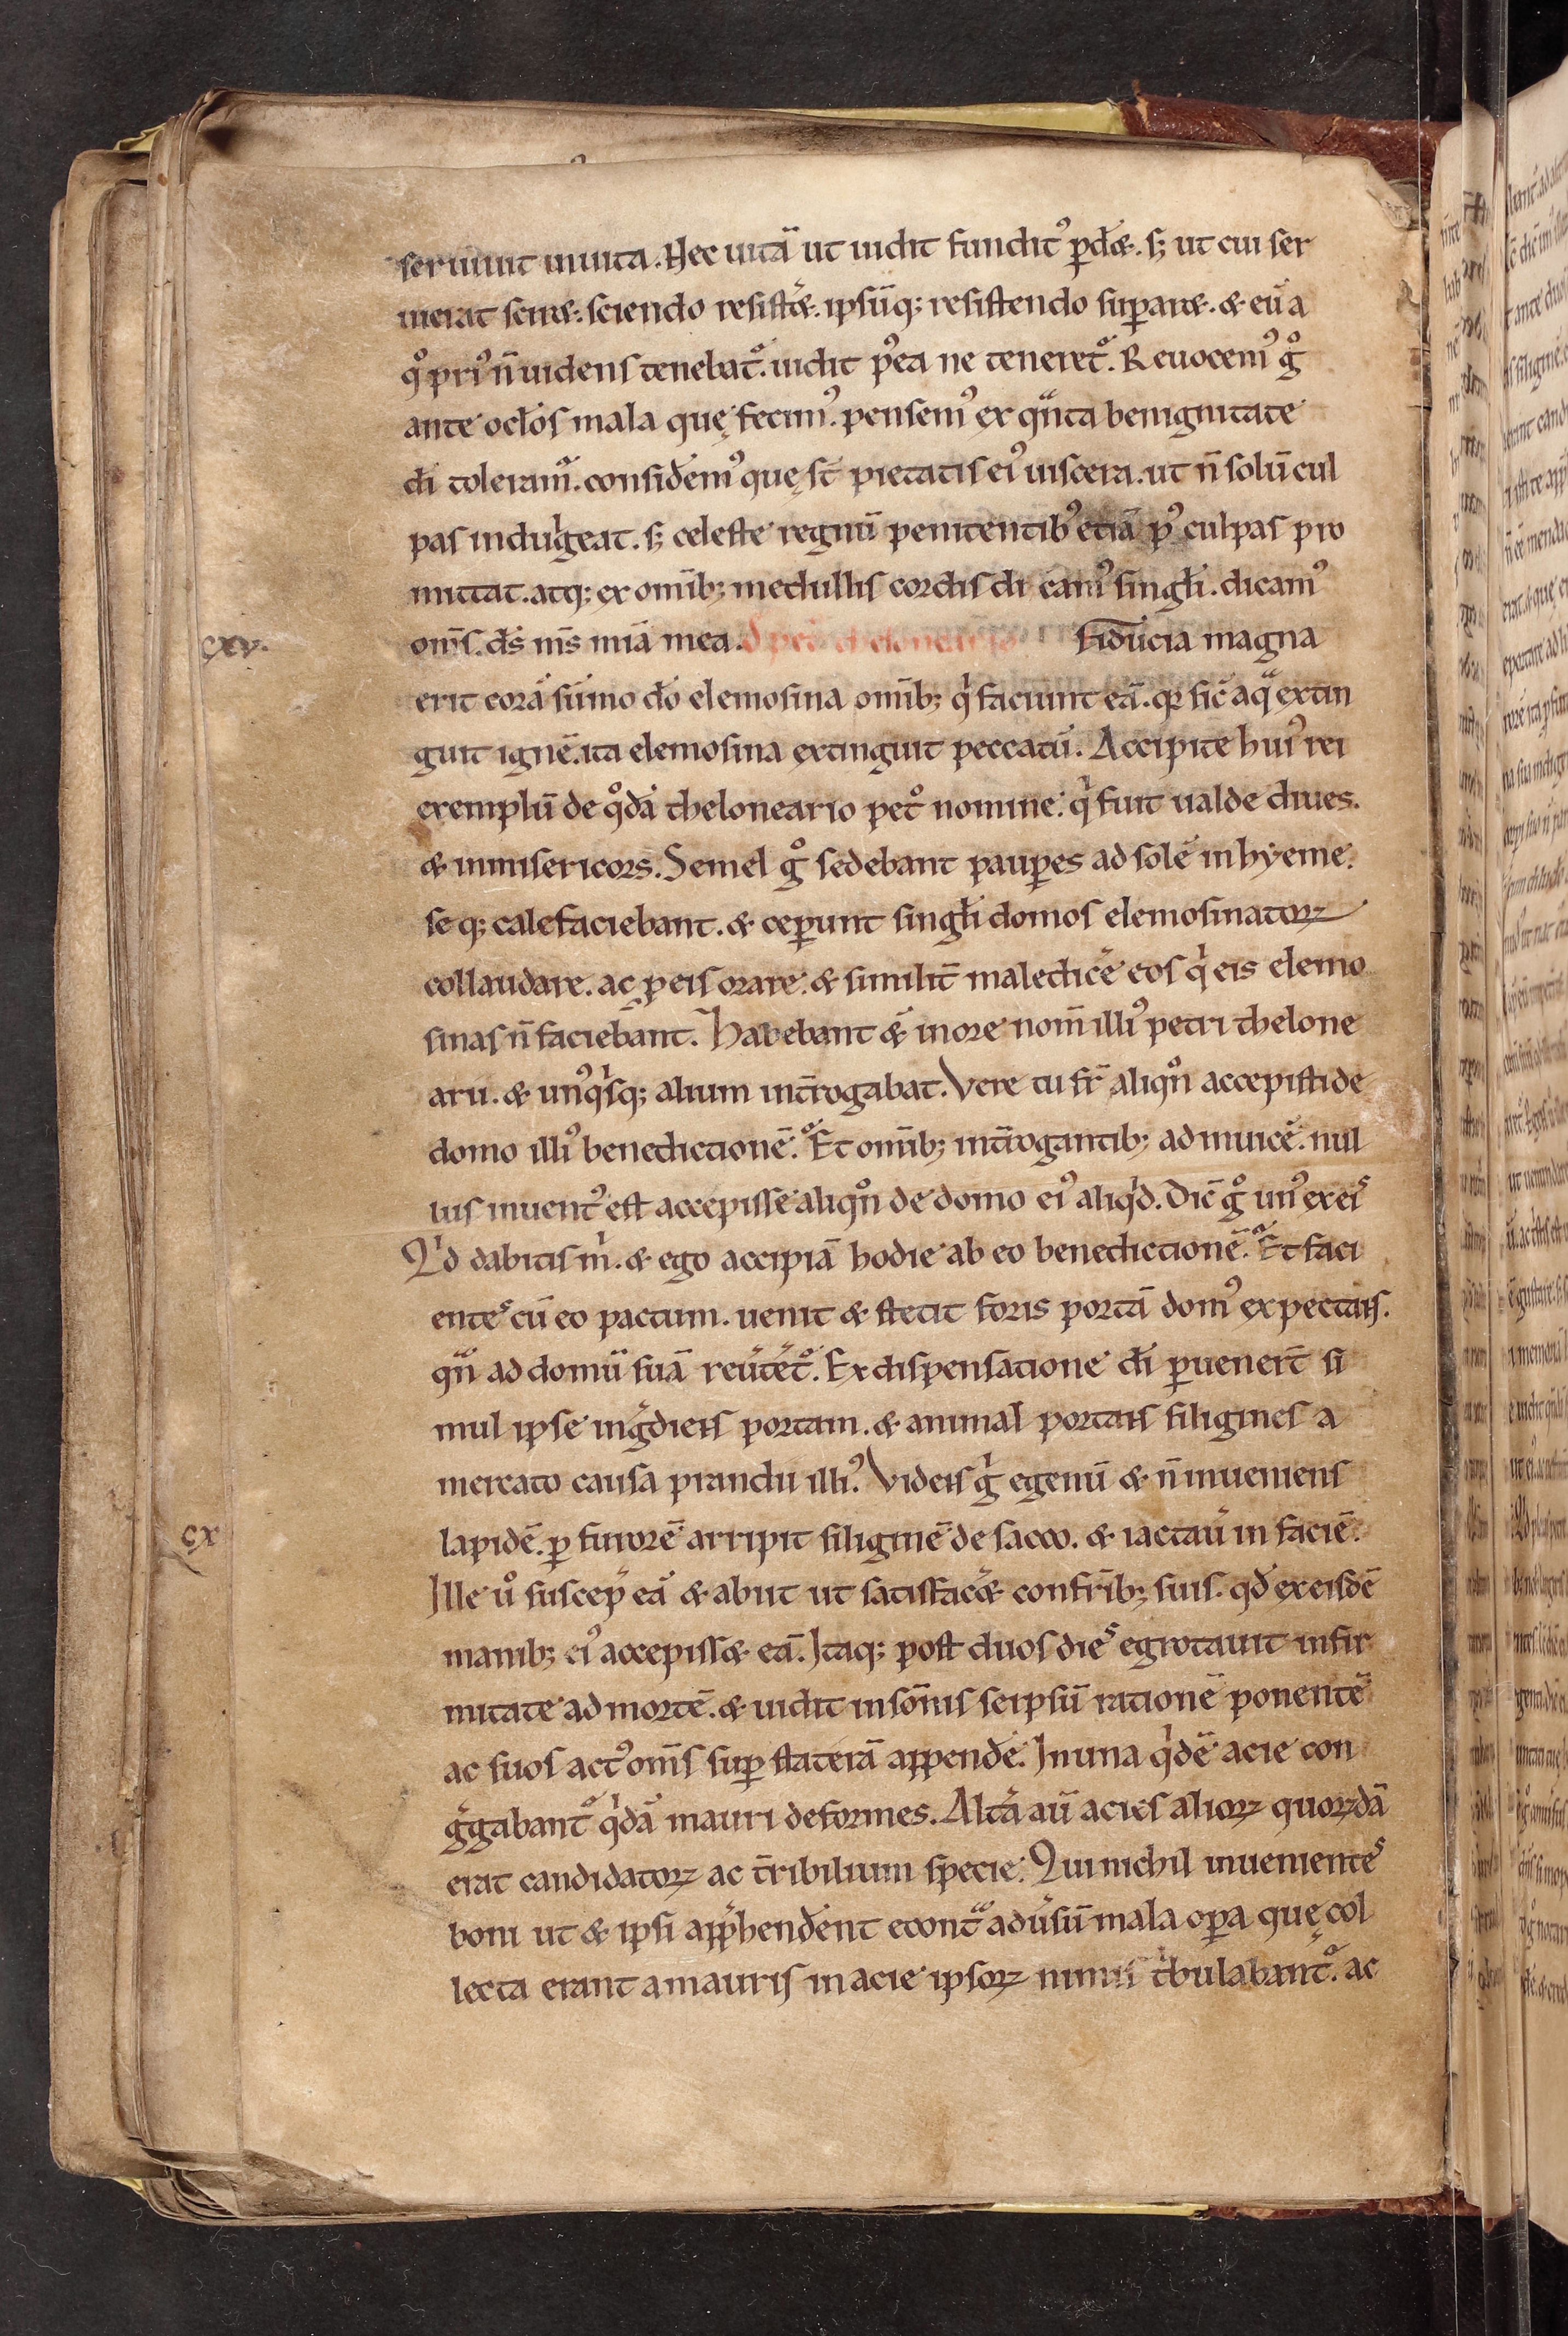 seruiuit inuita. Hec uitā ut uidit funditꝰ ꝑdæ. sꝫ ut cui ser
uierat sciræ. sciendo resistæ. ipsūqꝫ resistendo suꝑaræ. & eū a
qͦ priꝰ n̄ uidens tenebatͦ. uidit pꝰea ne teneretͦ. Reuocemꝰ gͦ
ante oclōs mala quę fecimꝰ. pensemꝰ ex qnͣta benignitate
dī toleramͣ. considemꝰ quę st̄ pietatis eiꝰ uiscera. ut n̄ solū cul
pas indulgeat. sꝫ celeste regnū penitentibꝰ etiā pꝰ culpas pro
mittat. atqꝫ ex omībꝫ medullis cordis dicamꝰ singłi. dicamꝰ
om̄s. ds̄ ms̄ miā mea. Fiducia magna
cxv.
erit corā sūmo dō elemosina omībꝫ qͥ faciunt eā. qꝛ sic̄ aqͣ extin
guit ignē. ita elemosina extinguit peccatū. Accipite huiꝰ rei
exemplū de qͦdā theloneario petͦ nomine. qͥ fuit ualde diues.
& inmisericors. Semel gͦ sedebant pauꝑes ad solē in hyeme.
seqꝫ calefaciebant. & ceꝑunt singłi domos elemosinatoꝝ
collaudare. ac ꝓ eis orare. & similit̄ maledicē eos qͥ eis elemo
sinas n̄ faciebant. Habebant & in ore nom̄ illiꝰ petri thelone
arii. & unꝰqͥsqꝫ alium int̄rogabat. Vere tu fr̄ aliqn̄ accepisti de
domo illiꝰ benedictionē. Et omībꝫ int̄rogantibꝫ ad inuicē. nul
lus inuentꝰ est accepisse aliqn̄ de domo eiꝰ aliqͥd. Dic̄ gͦ unꝰ ex eis
Qͥd dabitis m̄. & ego accipiā hodie ab eo benedictionē. Et faci
entes cū eo pactum. uenit & stetit foris portā domꝰ expectans.
qn̄ ad domū suā reūtetͦ. Ex dispensatione dī ꝑuenert̄ si
mul ipse ingͤdiens portam. & animal portans siligines a
mercato causa prandii illiꝰ. Videns gͥ egenū & n̄ inueniens
lapidē. ꝑ furorē arripit siliginē de sacco. & iactaū in faciē.
cx
Ille uͦ suscep̄ eā & abiit ut satisfacæ confrībꝫ suis. qd̄ ex eisdē
manibꝫ eiꝰ accepissæ eā. Itaqꝫ post duos dies egrotauit infir
mitate ad mortē. & uidit in somnis seipsū rationē ponentē
ac suos actꝰ om̄s suꝑ staterā appendē. In una qͥdē acie con
gͤgabantͦ qͥdā mauri deformes. Altā aū acies alioꝝ quoꝝdā
erat candidatoꝝ ac t̄ribilium specie. Qui nichil inuenientes
boni ut & ipsi app̄hendent econtͣ aduersū mala oꝑa quę col
lecta erant a mauris in acie ipsoꝝ nimis tͥbulabantͦ. ac